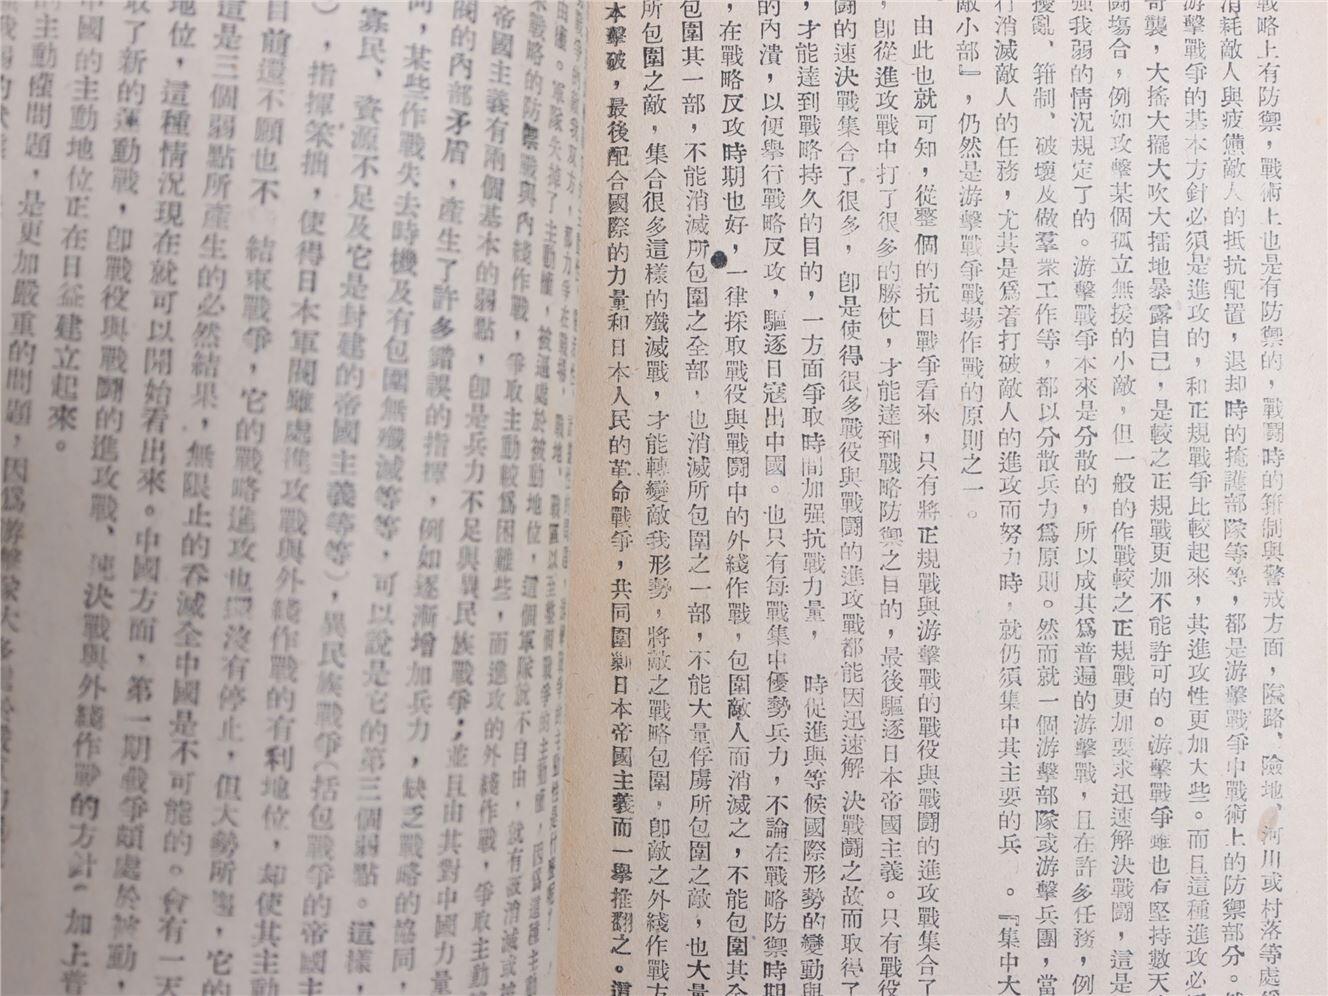 戰略上有防禦，戰術上也是有防禦的，戰鬪時的箝制與警戒方面，隘路、險地、河川或村落等處
消耗敵人與疲憊敵人的抵抗配置，退却時的掩護部隊等等，都是游擊戰爭中戰術上的防禦部分。
游擊戰爭的基本方針必須是進攻的，和正規戰爭比較起來，其進攻性更加大些。而且這種進攻必
奇襲，大搖大擺大吹大擂地暴露自己，是較之正規戰更加不能許可的。游擊戰爭雖也有堅持數天
鬪塲合，例如攻擊某個孤立無援的小敵，但一般的作戰較之正規戰更加要求迅速解決戰鬪，這是
强我弱的情況規定了的。游擊戰爭本來是分散的，所以成其爲普遍的游擊戰，且在許多任務，例
擾亂、箝制、破壞及做羣衆工作等，都以分散兵力爲原則。然而就一個游擊部隊或游擊兵團，當
行消滅敵人的任務，尤其是爲着打破敵人的進攻而努力時，就仍須集中其主要的兵 。『集中大
敵小部』，仍然是游擊戰爭戰場作戰的原則之一。
由此也就可知，從整個的抗日戰爭看來，只有將正規戰與游擊戰的戰役與戰鬪的進攻戰集合了
，卽從進攻戰中打了很多的勝仗，才能達到戰略防禦之目的，最後驅逐日本帝國主義。只有戰役
鬪的速決戰集合了很多，卽是使得很多戰役與戰鬪的進攻戰都能因迅速解 決戰鬪之故而取得了
，才能達到戰略持久的目的，一方面爭取時間加强抗戰力量， 時促進與等候國際形勢的變動與
的內潰，以便舉行戰略反攻，驅逐日寇出中國。也只有每戰集中優勢兵力，不論在戰略防禦時期
，在戰略反攻時期也好，一律採取戰役與戰鬪中的外綫作戰，包圍敵人而消滅之，不能包圍其全
包圍其一部，不能消滅所包圍之全部，也消滅所包圍之一部，不能大量俘虜所包圍之敵，也大量
所包圍之敵，集合很多這樣的殲滅戰，才能轉變敵我形勢，將敵之戰略包圍，卽敵之外綫作戰方
本擊破，最後配合國際的力量和日本人民的革命戰爭，共同圍剿日本帝國主義而一舉推翻之。這
來戰略的防禦戰與內綫作戰，爭取主動較爲困難些，而進攻的外綫作戰，爭取主動
帝國主義有兩個基本的弱點，卽是兵力不足與異民族戰爭；並且由其對中國力量
閥的內部矛盾，產生了許多錯誤的指揮，例如逐漸增加兵力，缺乏戰略的協同，
，某些作戰失去時機及有包圍無殲滅等等，可以說是它的第三個弱點。這樣，
寡民、資源不足及它是封建的帝國主義等等），異民族戰爭（括包戰爭的帝國主
），指揮笨拙，使得日本軍閥雖處進攻戰與外綫作戰的有利地位，却使其主動
目前還不願也不 結束戰爭，它的戰略進攻也還沒有停止，但大勢所趨，它的
這是三個弱點所產生的必然結果，無限止的吞滅全中國是不可能的。會有一天
地位，這種情況現在就可以開始看出來。中國方面，第一期戰爭頗處於被動，
取了新的運動戰，卽戰役與戰鬪的進攻戰、速決戰與外綫作戰的方針。加上普
中國的主動地位正在日益建立起來。
的主動權問題，是更加嚴重的問題，因爲游擊隊大多